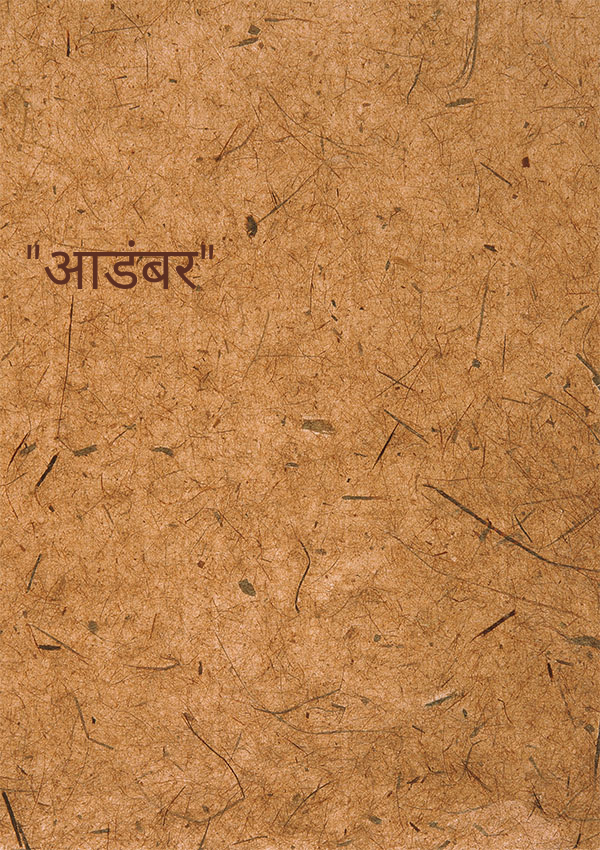 "आडंबर"